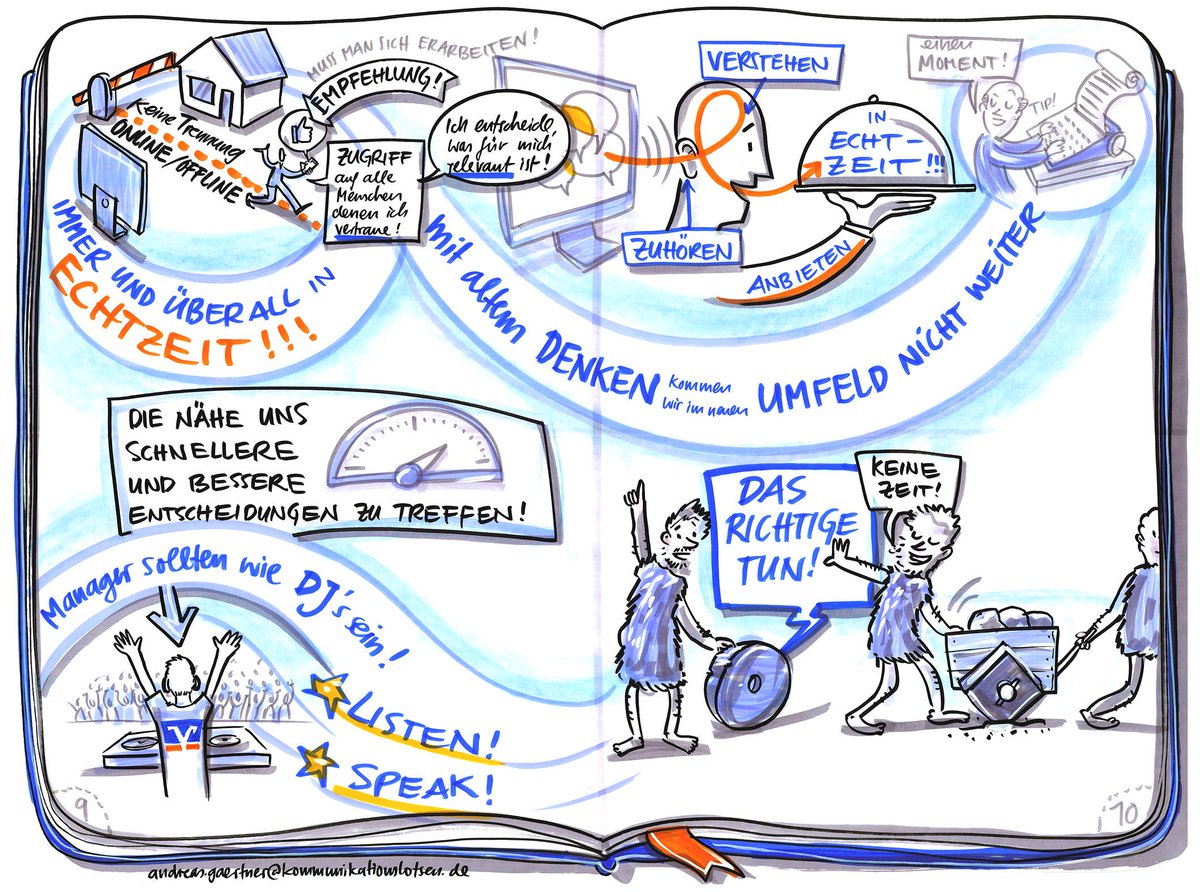 MUSS MAN SICH ERARBEITEN!
EMPFEHLUNG!
Keine Trennung
ONLINE/OFFLINE
ZUGRIFF
auf alle
Menschen
denen ich
vertraue!
Ich entscheide,
was für mich
relevant ist!
IMMER UND ÜBERALL IN
ECHTZEIT!!!
VERSTEHEN
ZUHÖREN
ANBIETEN
IN
ECHT-
ZEIT!!!
einen
MOMENT!
TIP!
mit altem DENKEN kommen
wir im neuen UMFELD NICHT WEITER
DIE NÄHE UNS
SCHNELLERE
UND BESSERE
ENTSCHEIDUNGEN ZU TREFFEN!
Manager sollten wie DJ's sein!
LISTEN!
SPEAK!
DAS
RICHTIGE
TUN!
KEINE
ZEIT!
9
10
andreas.gaertner@kommunikationslotsen.de